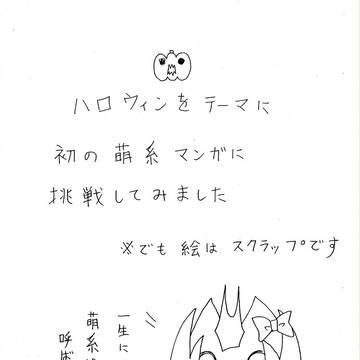 ハロウィンをテーマに
初の萌系マンガに
挑戦してみました
※でも絵はスクラップです
一生に
萌系
呼ば